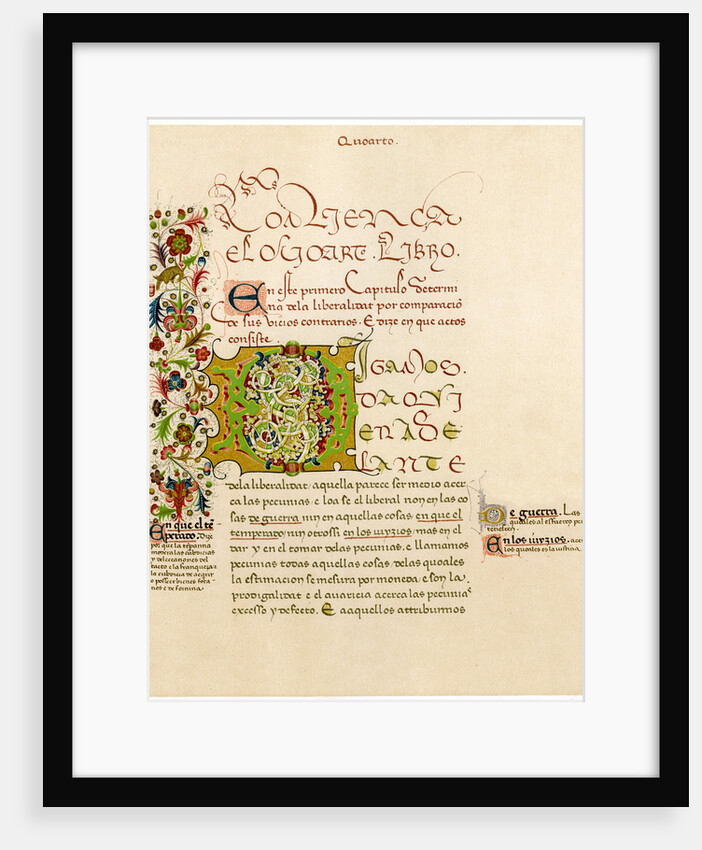 Quoarto.
COMIENCA
EL QUOARTO. LIBRO.
En este primero Capitulo determi
na dela liberalitat por comparació
de sus vicios contrarios. E dize en que actos
consiste.
DIGAMOS.
DAQUI
ERADE
LANTE
dela liberalitat / aquella parece ser medio acer
ca las pecunias. e loa se el liberal non en las co
sas de guerra. nin en aquellas cosas. en que el
temperato / nin otrossi en los iuyzios / mas en el
dar y en el tomar delas pecunias. e llamamos
pecunias todas aquellas cosas. delas quoales
la estimacion se mesura por moneda. e son la.
prodigalitat e el auaricia acerca las pecunias
excesso y defecto. E a aquellos attribuimos
En que el té
perato. Dize
por que la
modera las
y delectaciones del
tacto. e la franqueza
la cubdicia de
o posseer bienes
De guerra. Las
quoales al
En los iuyzios.
los quoales es la iusticia.